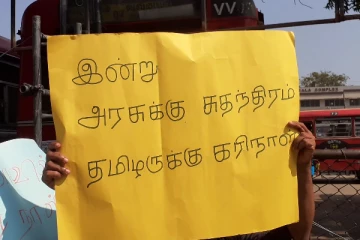 VV
இன்று
அரசுக்கு சுதந்திரம்
தமிழருக்கு கரிநாள்